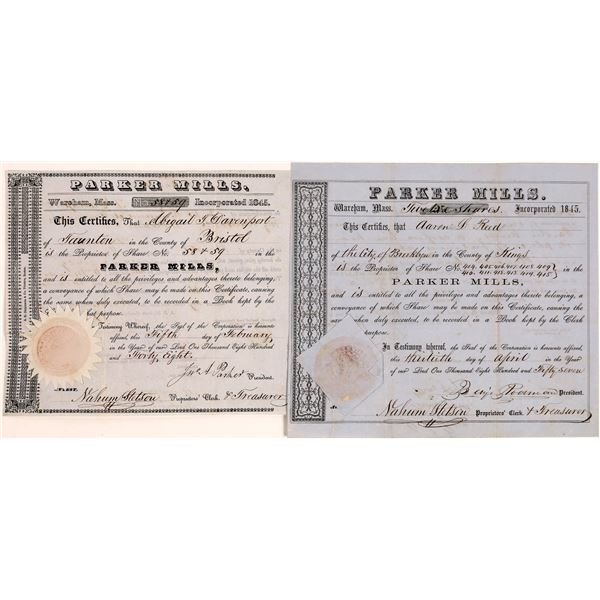 PARKER MILLS,
Wareham, Mass. No. 58 & 59 Incorporated 1845.
This Certifies, That Abigail T. Davenport
of Taunton in the County of Bristol
is the Proprietor of Share No. 58 & 59 in the
PARKER MILLS,
and is entitled to all the privileges and advantages thereto belonging,
a conveyance of which Share may be made on this Certificate, causing
the same when duly executed, to be recorded in a Book kept by the
that purpose.
Testimony Whereof, the Seal of the Corporation is hereunto
affixed, this Fifth day of February
in the Year of our Lord One Thousand Eight Hundred
and Forty Eight.
Jno. A. Parker President.
Nahum Stetson Proprietors' Clerk. & Treasurer
PARKER MILLS.
Wareham, Mass. Twelve Shares. Incorporated 1845.
This Certifies, that Aaron D. Reed
of the City of Brooklyn in the County of Kings
is the Proprietor of Share No. 404, 405, 406, 407, 408, 409 in the
410, 411, 412, 413, 414, 415
PARKER MILLS,
and is entitled to all the privileges and advantages thereto belonging, a
conveyance of which Share may be made on this Certificate, causing the
same when duly executed, to be recorded in a Book kept by the Clerk
purpose.
In Testimony whereof, the Seal of the Corporation is hereunto
affixed, this thirtieth day of April in the Year
of our Lord One Thousand Eight Hundred and Fifty seven
President.
No.
Nahum Stetson Proprietors' Clerk. & Treasurer